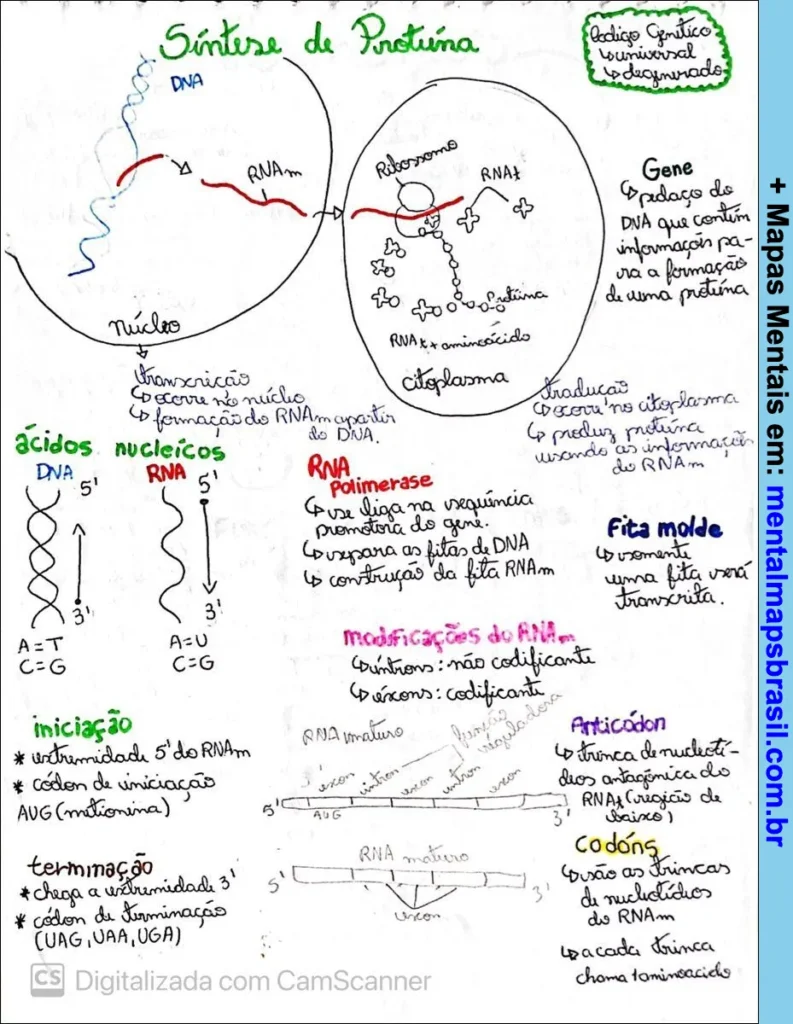 Síntese de Proteína
Código Genético
↳ universal
↳ degenerado
DNA
RNAm
Ribossomo
RNAt
Proteína
RNAt + aminoácido
citoplasma
núcleo
Gene
↳ pedaço do
DNA que contém
informações pa-
ra a formação
de uma proteína
transcrição
↳ ocorre no núcleo
↳ formação do RNAm a partir
do DNA.
tradução
↳ ocorre no citoplasma
↳ produz proteína
usando as informações
do RNAm
ácidos nucleícos
DNA
5'
3'
A=T
C=G
RNA
5'
3'
A=U
C=G
RNA
Polimerase
↳ se liga na sequência
promotora do gene.
↳ separa as fitas de DNA
↳ construção da fita RNAm
Fita molde
↳ somente
uma fita será
transcrita.
modificações do RNAm
↳ íntrons: não codificante
↳ éxons: codificante
iniciação
* extremidade 5' do RNAm
* códon de iniciação
AUG (metionina)
RNA imaturo
função
reguladora
exon
intron
exon
intron
exon
5'
AUG
3'
Anticódon
↳ trinca de nucleotí-
deos antagônica do
RNAt (região de
baixo)
terminação
* chega a extremidade 3'
* códon de terminação
(UAG, UAA, UGA)
RNA maturo
5'
3'
exon
Codóns
↳ são as trincas
de nucleotídios
do RNAm
↳ a cada trinca
chama 1 aminoacido
CS Digitalizada com CamScanner
+ Mapas Mentais em: mentalmapsbrasil.com.br